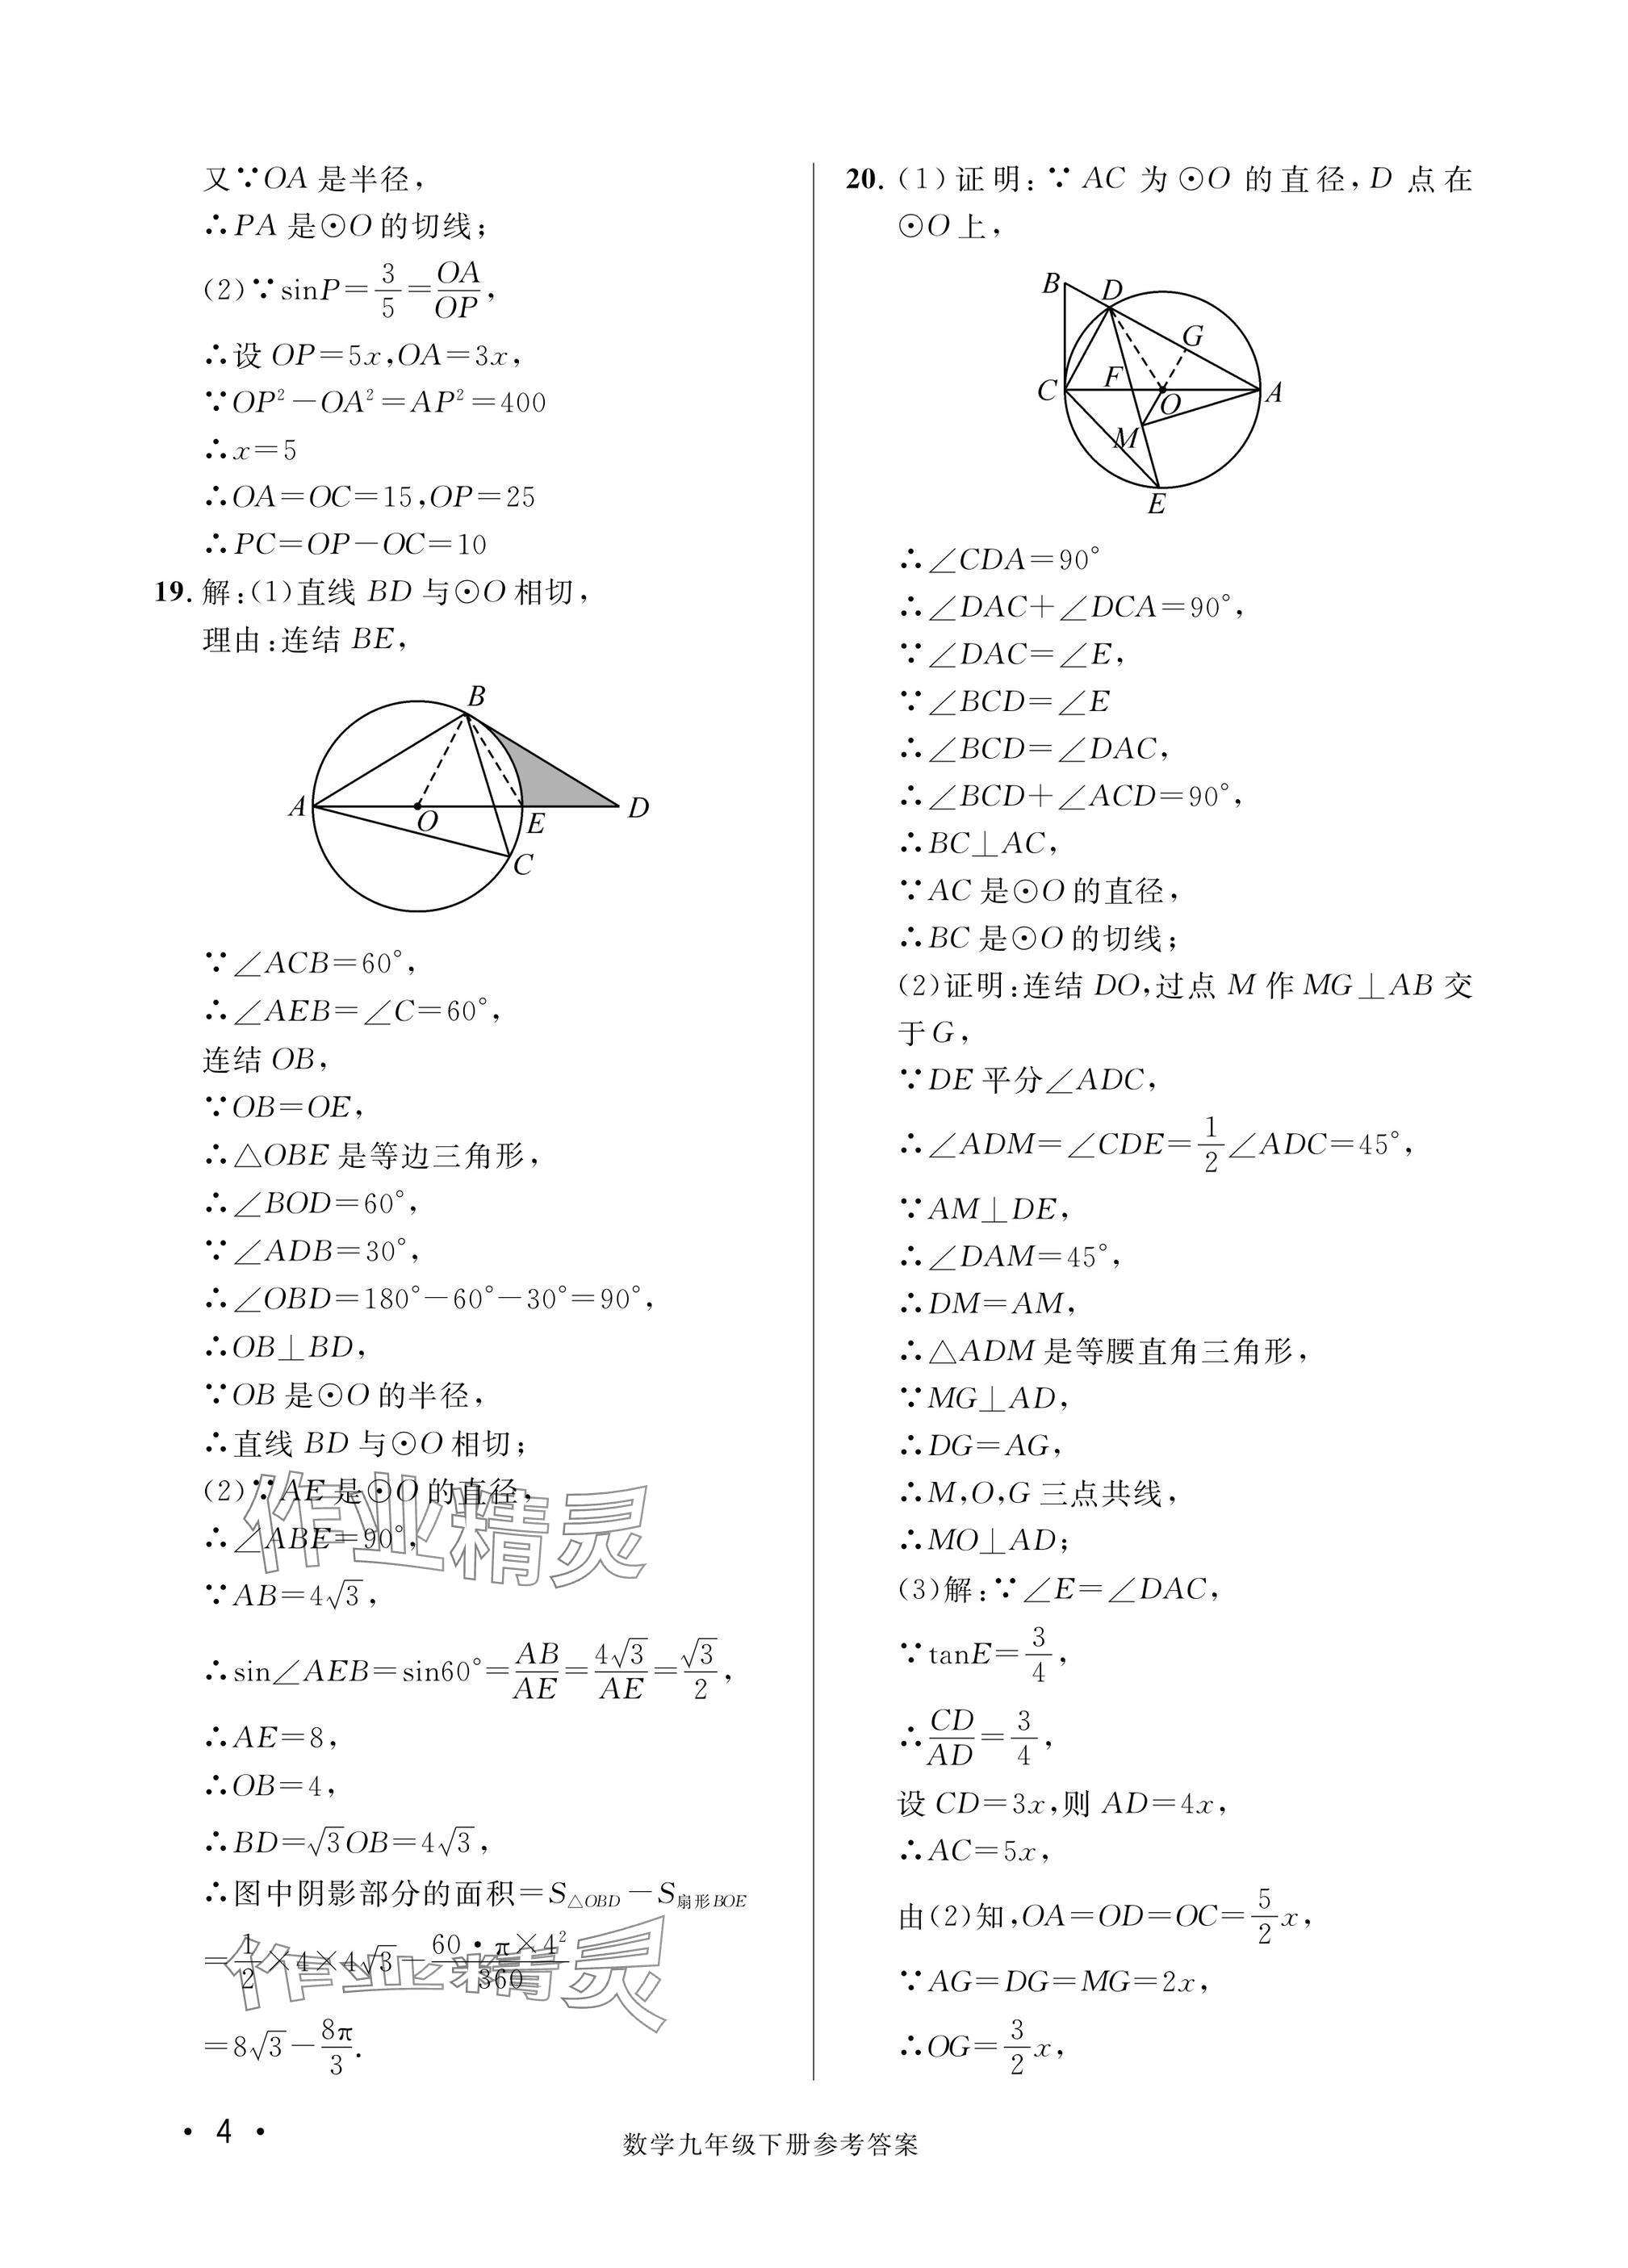 又∵OA 是半径,
∴PA 是⊙O 的切线;
(2)∵sinP=3/5=OA/OP,
∴设 OP=5x,OA=3x,
∵OP²-OA²=AP²=400
∴x=5
∴OA=OC=15,OP=25
∴PC=OP-OC=10
19. 解:(1)直线 BD 与⊙O 相切,
理由:连结 BE,
B
A
O
E
D
C
∵∠ACB=60°,
∴∠AEB=∠C=60°,
连结 OB,
∵OB=OE,
∴△OBE 是等边三角形,
∴∠BOD=60°,
∵∠ADB=30°,
∴∠OBD=180°-60°-30°=90°,
∴OB⊥BD,
∵OB 是⊙O 的半径,
∴直线 BD 与⊙O 相切;
(2)∵AE 是⊙O 的直径,
∴∠ABE=90°,
作业精灵
∵AB=4√3,
∴sin∠AEB=sin60°=AB/AE=4√3/AE=√3/2,
∴AE=8,
∴OB=4,
∴BD=√3OB=4√3,
∴图中阴影部分的面积=S△OBD-S扇形BOE
=1/2×4×4√3-60·π×4²/360
作业精灵
=8√3-8π/3.
20. (1)证明:∵AC 为⊙O 的直径,D 点在
⊙O 上,
B
D
G
C
F
O
A
M
E
∴∠CDA=90°
∴∠DAC+∠DCA=90°,
∵∠DAC=∠E,
∵∠BCD=∠E
∴∠BCD=∠DAC,
∴∠BCD+∠ACD=90°,
∴BC⊥AC,
∵AC 是⊙O 的直径,
∴BC 是⊙O 的切线;
(2)证明:连结 DO,过点 M 作 MG⊥AB 交
于 G,
∵DE 平分∠ADC,
∴∠ADM=∠CDE=1/2∠ADC=45°,
∵AM⊥DE,
∴∠DAM=45°,
∴DM=AM,
∴△ADM 是等腰直角三角形,
∵MG⊥AD,
∴DG=AG,
∴M,O,G 三点共线,
∴MO⊥AD;
(3)解:∵∠E=∠DAC,
∵tanE=3/4,
∴CD/AD=3/4,
设 CD=3x,则 AD=4x,
∴AC=5x,
由(2)知,OA=OD=OC=5/2x,
∵AG=DG=MG=2x,
∴OG=3/2x,
· 4 ·
数学九年级下册参考答案